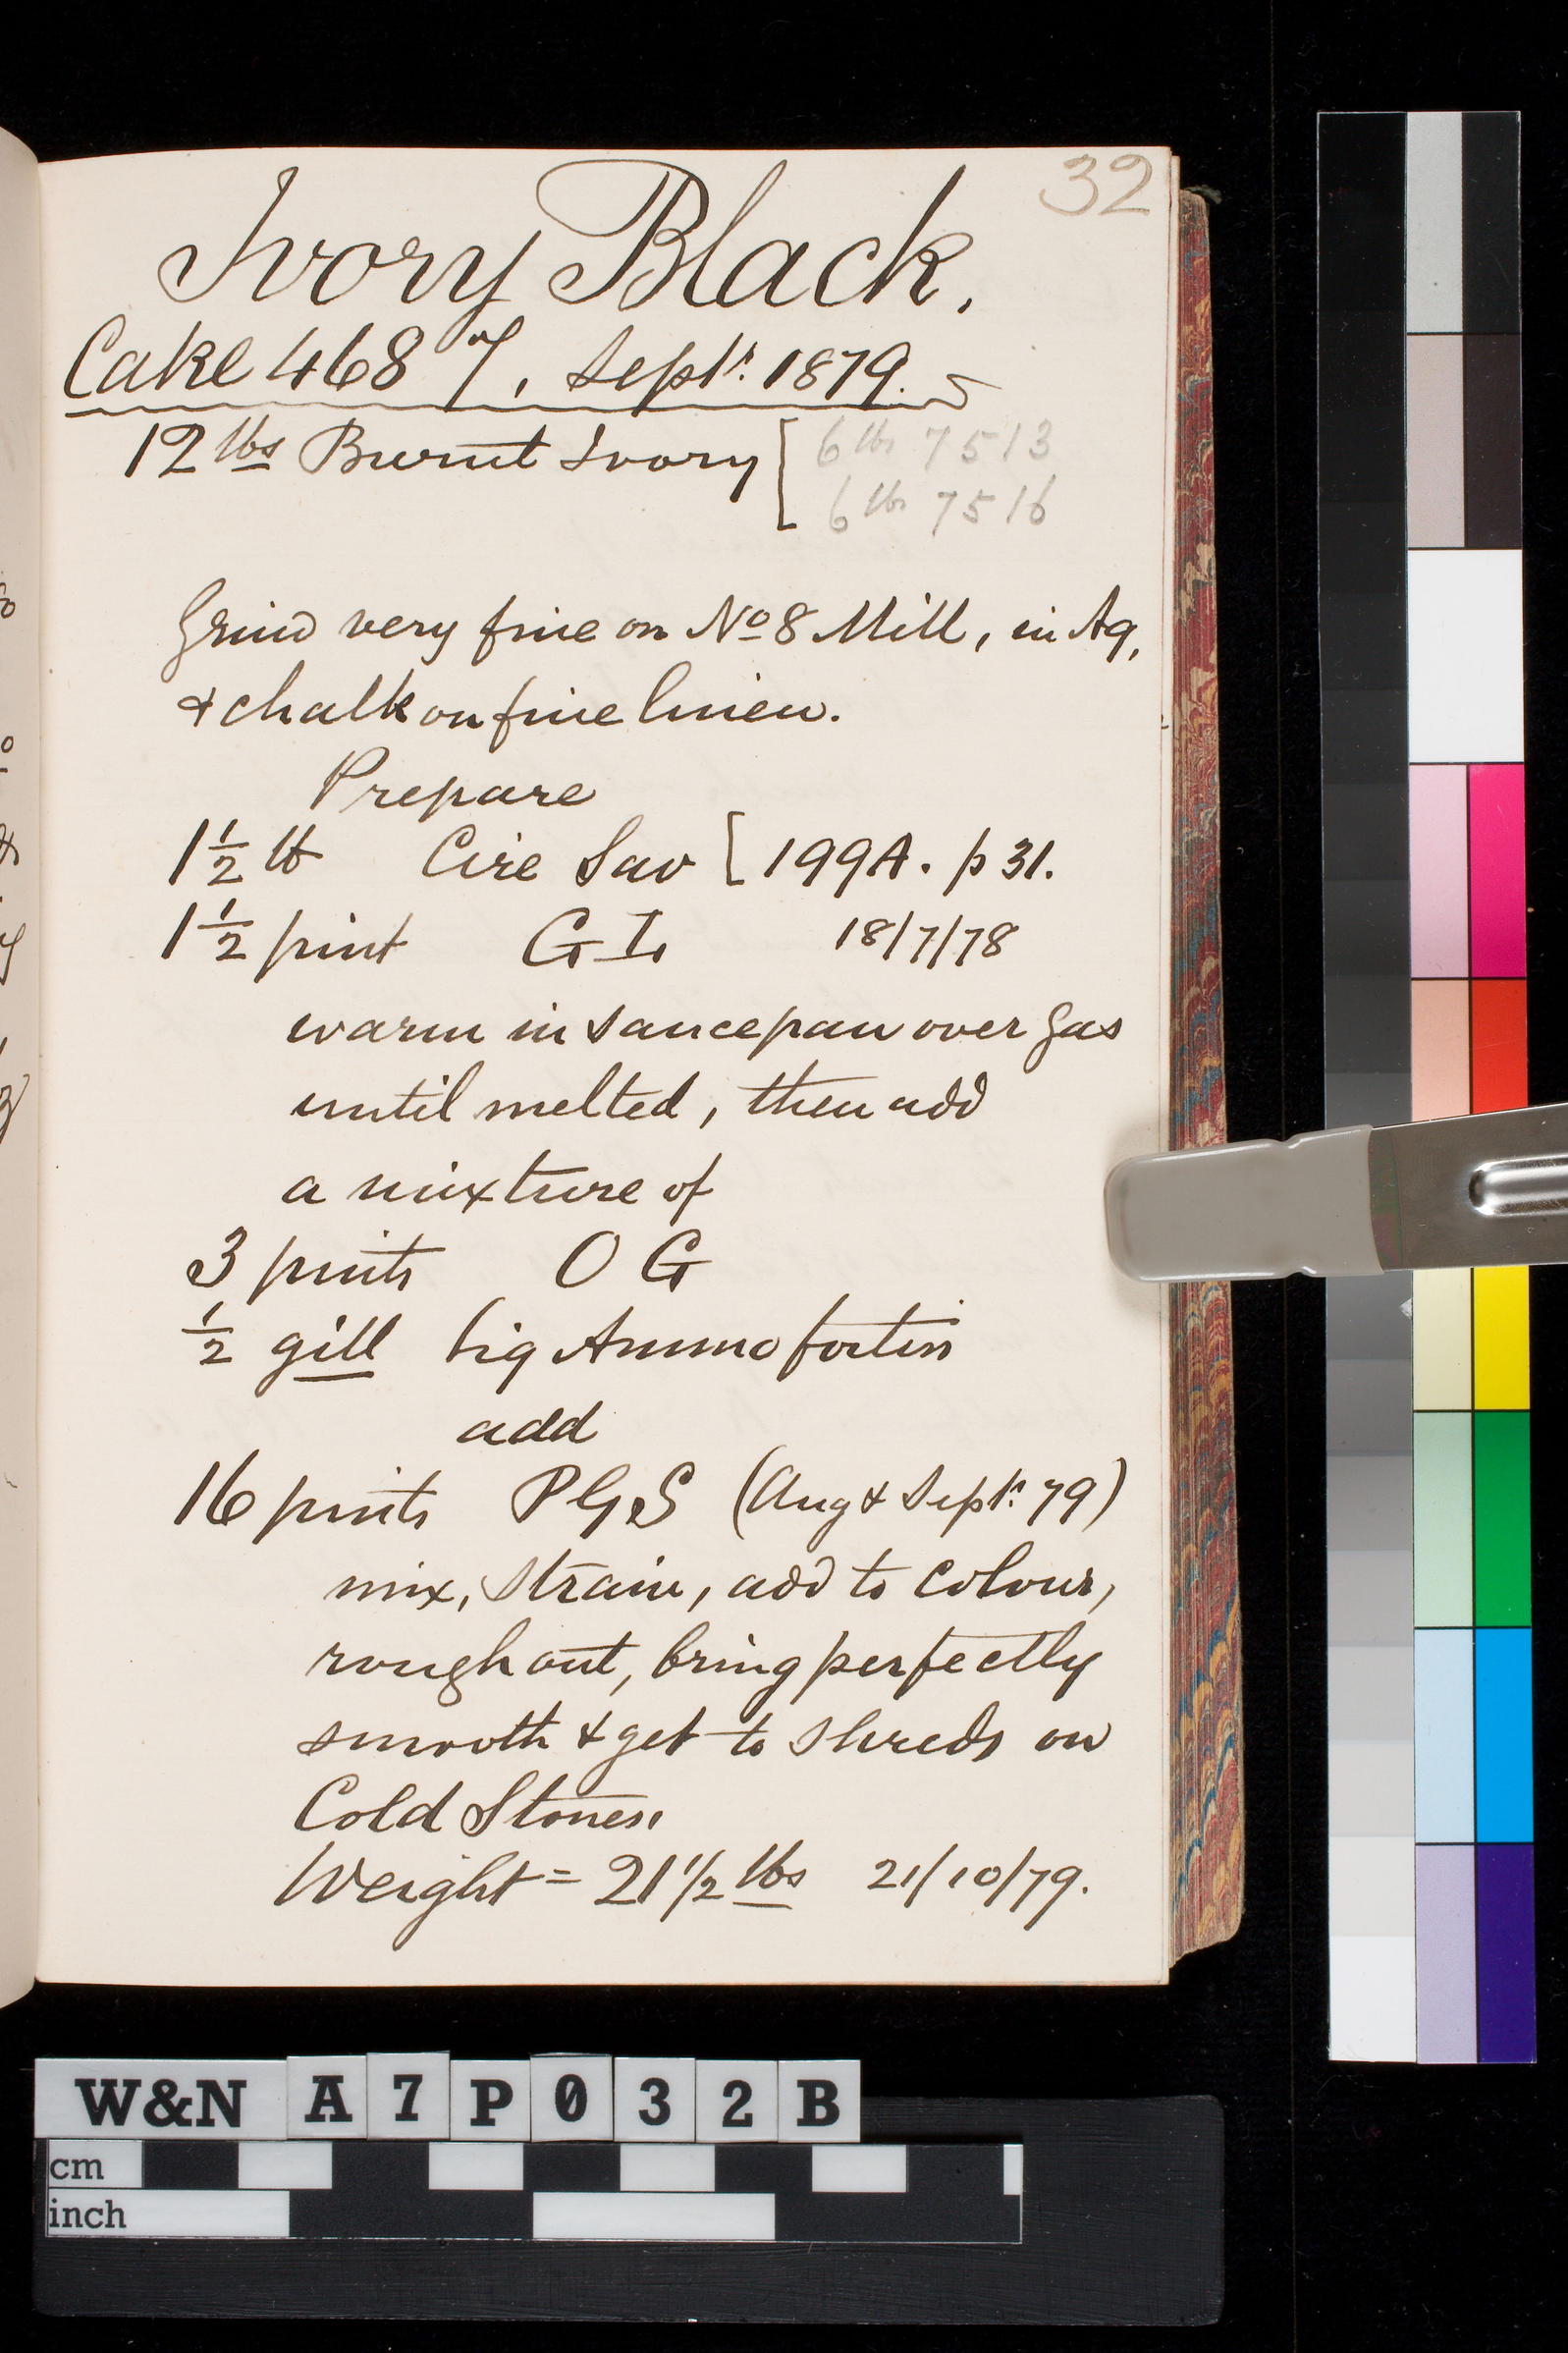 32
Ivory Black.
Cake 468 7, Septr. 1879.
12 lbs Burnt Ivory [ 6 lbs 7513
6 lbs 7516
Grind very fine on No 8 Mill, in Aq,
& chalk on fine linen.
Prepare
1 1/2 lb Cire Sav [ 199A. p 31.
1 1/2 pint G I 18/7/78
warm in saucepan over gas
until melted, then add
a mixture of
3 pints O G
1/2 gill Liq Ammo fortiss
add
16 pints P G S (Aug & Septr. 79)
mix, strain, add to colour,
rough out, bring perfectly
smooth & get to shreds on
Cold Stones.
Weight = 21 1/2 lbs 21/10/79.
W&N A7P032B
cm
inch